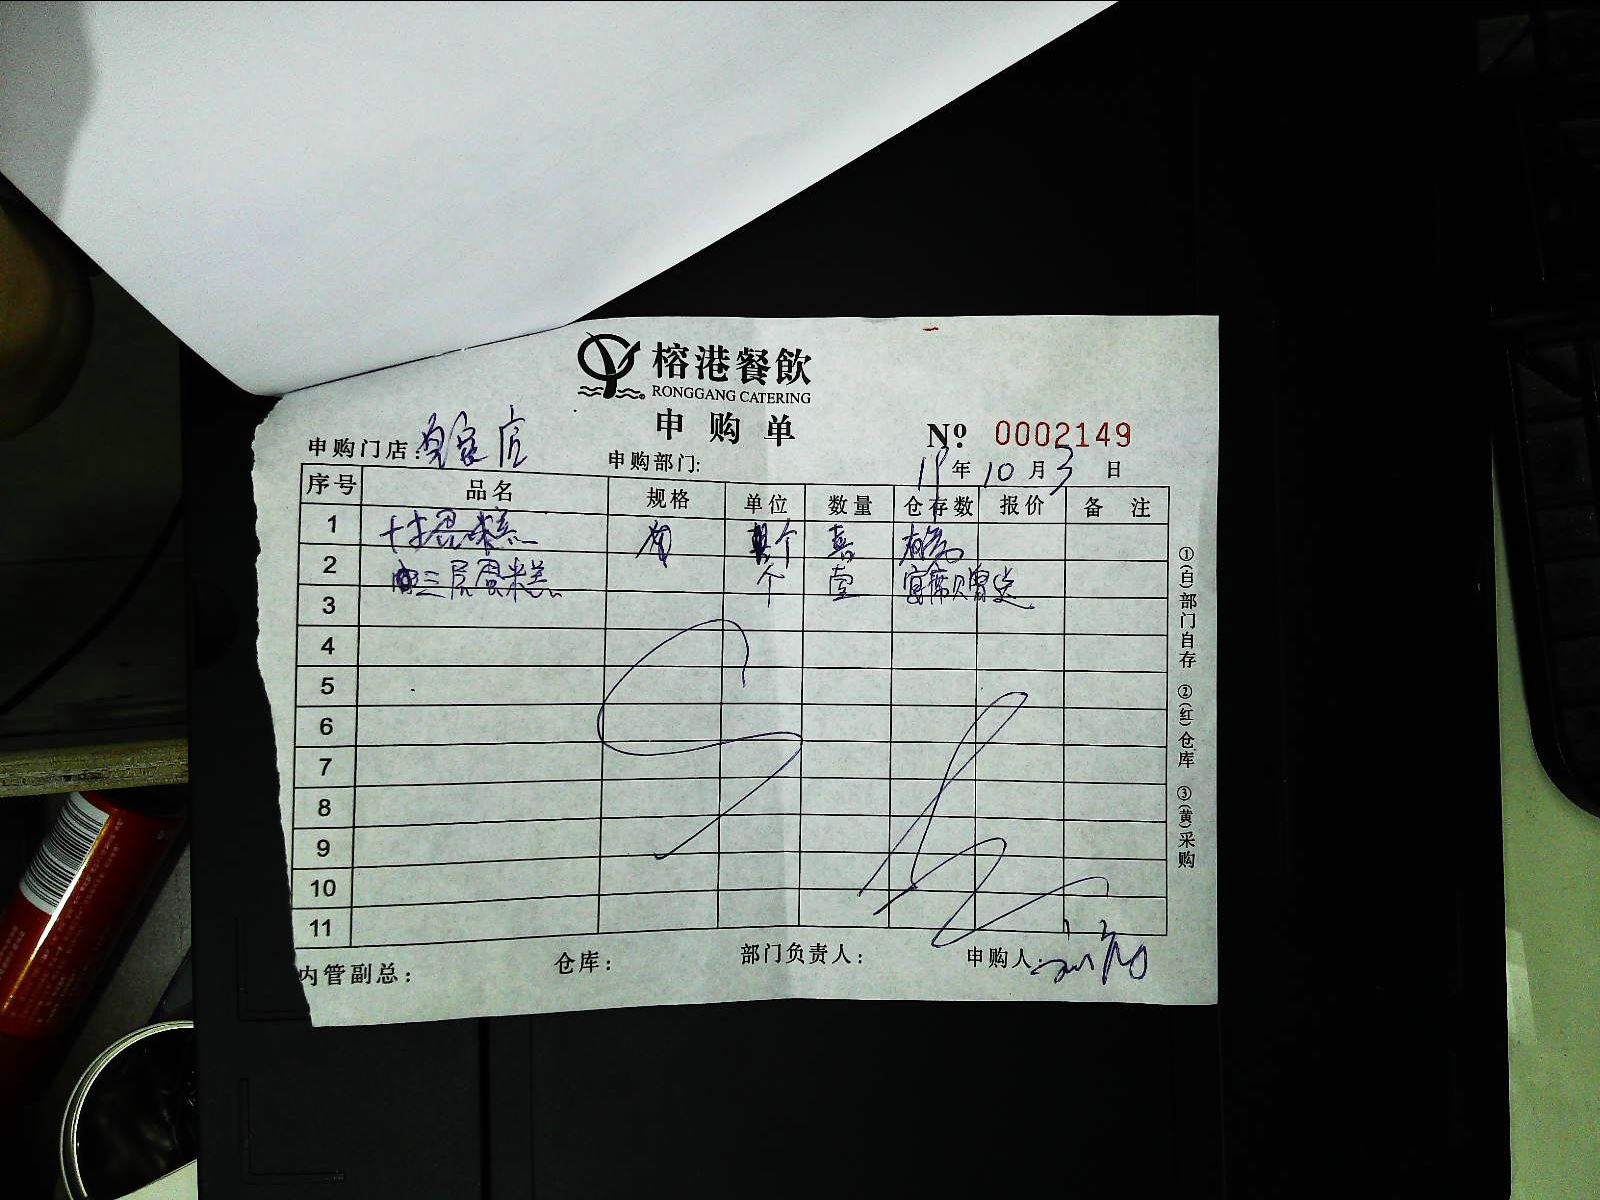 榕港餐飲
RONGGANG CATERING
申购单
№ 0002149
申购门店: 店
申购部门:
19年10月3日
序号 品名 规格 单位 数量 仓存数 报价 备注
1 十寸蛋糕 个 壹
2 三层蛋糕 个 壹 宴席赠送
3
4
5
6
7
8
9
10
11
内管副总:
仓库:
部门负责人:
申购人:
①(白)部门自存 ②(红)仓库 ③(黄)采购